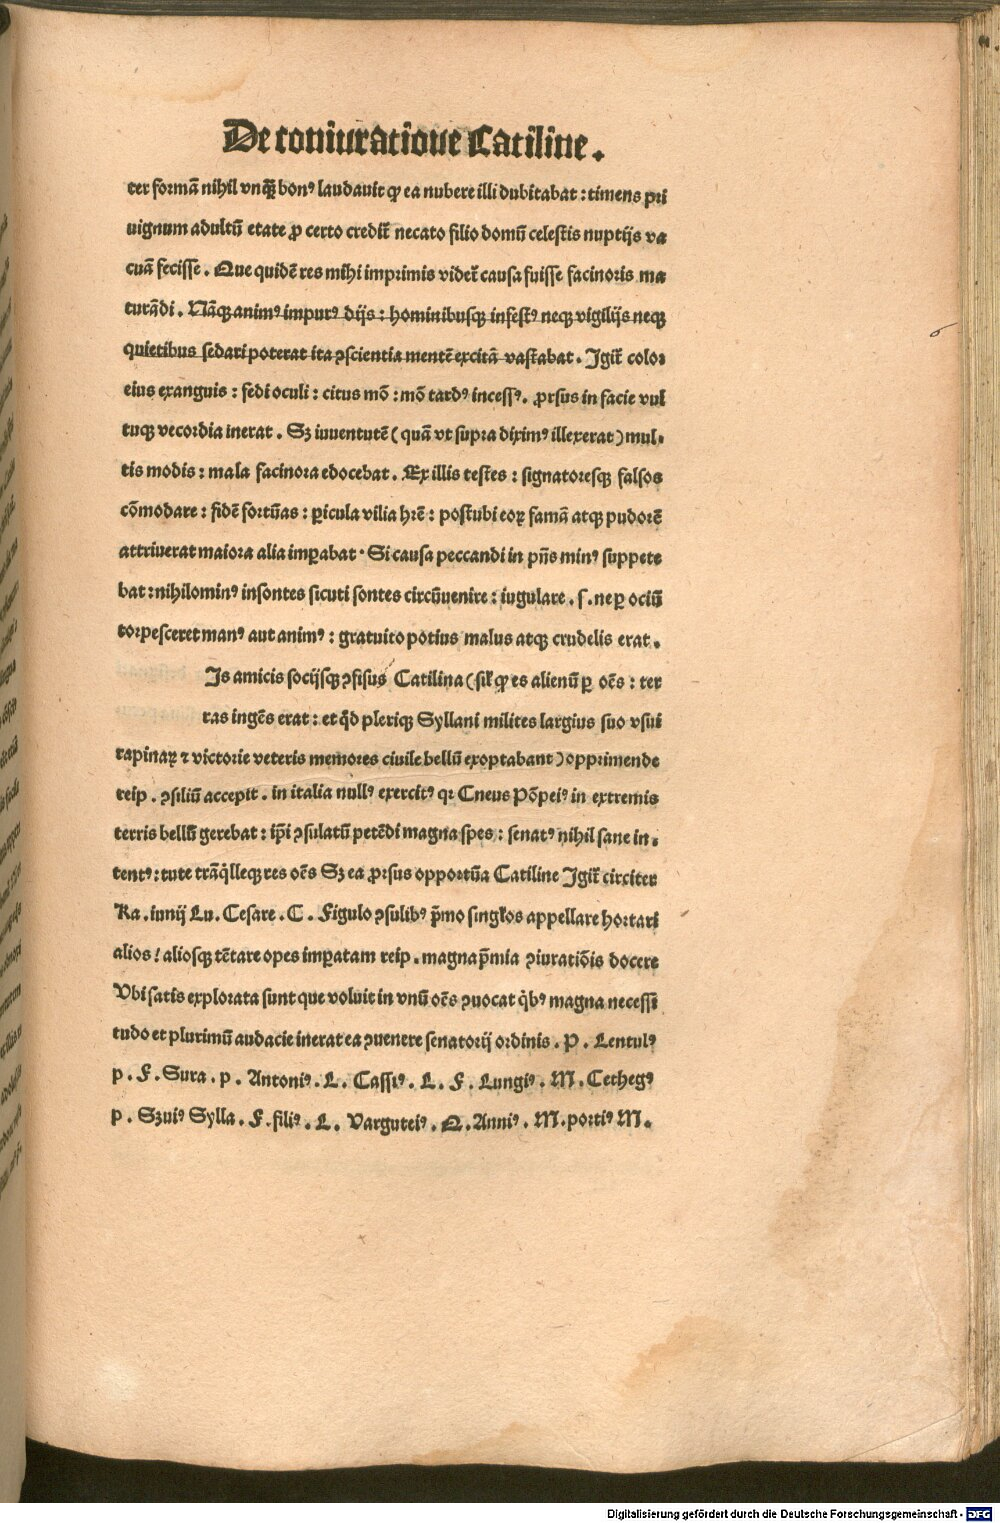 De coniuratione Catiline.
ter formā nihil vnꝗ̄ᷓ bonꝰ laudauit ꝙ ea nubere illi dubitabat : timens pri
uignum adultū etate ꝓ certo credit̃ necato filio domū celestis nuptijs va
cuā fecisse . Que quidē res mihi imprimis videt̃ causa fuisse facinoris ma
turādi . Nāqꝫ animꝰ impurꝰ dijs : hominibusqꝫ infestꝰ neqꝫ vigilijs neqꝫ
quietibus sedari poterat ita ꝯscientia mentē excitā vastabat . Igit̃ color
eius exanguis : fedi oculi : citus mō : mō tardꝰ incessꝰ . ꝓrsus in facie vul
tuqꝫ vecordia inerat . Sꝫ iuuentutē ( quā vt supra diximꝰ illexerat ) mul-
tis modis : mala facinora edocebat . Ex illis testes : signatoresqꝫ falsos
cōmodare : fidē fortūas : ꝑicula vilia hr̄e : post vbi eoꝝ famā atqꝫ pudorē
attriuerat maiora alia imꝑabat · Si causa peccandi in pn̄s minꝰ suppete
bat : nihilominꝰ insontes sicuti sontes circūuenire : iugulare . s . ne ꝑ ociū
torpesceret manꝰ aut animꝰ : gratuito potius malus atqꝫ crudelis erat .
Is amicis socijsqꝫ ꝯfisus Catilina ( sil̓ ꝙ es alienū ꝑ oēs : ter
ras ingēs erat : et qd̓ pleriqꝫ Syllani milites largius suo vsui
rapinaꝝ ⁊ victorie veteris memores ciuile bellū exoptabant ) opprimende
reip . ꝯsiliū accepit . in italia nullꝰ exercitꝰ qꝛ Cneus Pōpeiꝰ in extremis
terris bellū gerebat : ip̄i ꝯsulatū petēdi magna spes : senatꝰ nihil sane in-
tentꝰ : tute trāq̇lleqꝫ res oēs Sꝫ ea ꝓrsus opportūa Catiline Igit̃ circiter
Ka . iunij Lu . Cesare . C . Figulo ꝯsulibꝰ p̄mo singl̓os appellare hortari
alios ! aliosqꝫ tētare opes imꝑatam reip . magna p̄mia ꝯiuratiōis docere
Vbi satis explorata sunt que voluit in vnū oēs ꝯuocat q̇bꝰ magna necessi
tudo et plurimū audacie inerat ea ꝯuenere senatorij ordinis . P . Lentulꝰ
p . F . Sura . p . Antoniꝰ . L . Cassiꝰ . L . F . Lungiꝰ . M . Cethegꝰ
p . Sꝫuiꝰ Sylla . F . filiꝰ . L . Varguteiꝰ . Q . Anniꝰ . M . portiꝰ M .
6
Digitalisierung gefördert durch die Deutsche Forschungsgemeinschaft - DFG